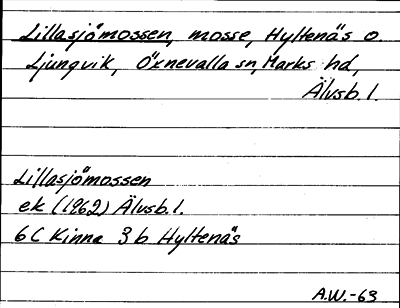 Lillasjömossen, mosse, Hyltenäs o.
Ljungvik, Öxnevalla sn, Marks hd,
Älvsb. l.
Lillasjömossen
ek (1962) Älvsb. l.
6 C Kinna 3 b Hyltenäs
A.W.-63